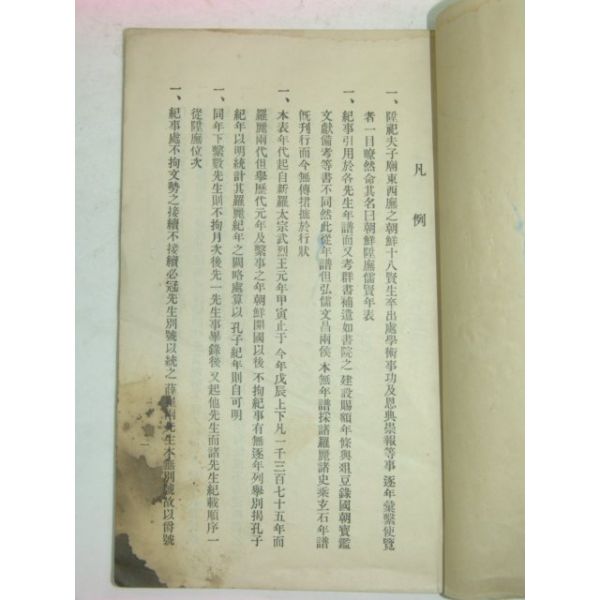 凡例
一、陞祀夫子廟東西廡之朝鮮十八賢生卒出處學術事功及恩典崇報等事逐年彙繫使覽
者一目瞭然命其名曰朝鮮陞廡儒賢年表
一、紀事引用於各先生年譜而又考群書補遺如書院之建設賜額年條與俎豆錄國朝寶鑑
文獻備考等書不同然此從年譜但弘儒文昌兩侯本無年譜採諸羅麗諸史乘玄石年譜
旣刊行而今無傳捃摭於行狀
一、本表年代起自新羅太宗武烈王元年甲寅止于今年戊辰上下凡一千三百七十五年而
羅麗兩代但擧歷代元年及繫事之年朝鮮開國以後不拘紀事有無逐年列擧別揭孔子
紀年以明統計其羅麗紀年之闕略處算以孔子紀年則自可明
一、同年下繫數先生則不拘月次後先一先生事畢錄後又起他先生而諸先生紀載順序一
從陞廡位次
一、紀事處不拘文勢之接續不接續必冠先生別號以統之薛崔兩先生本無別號故以爵號
一